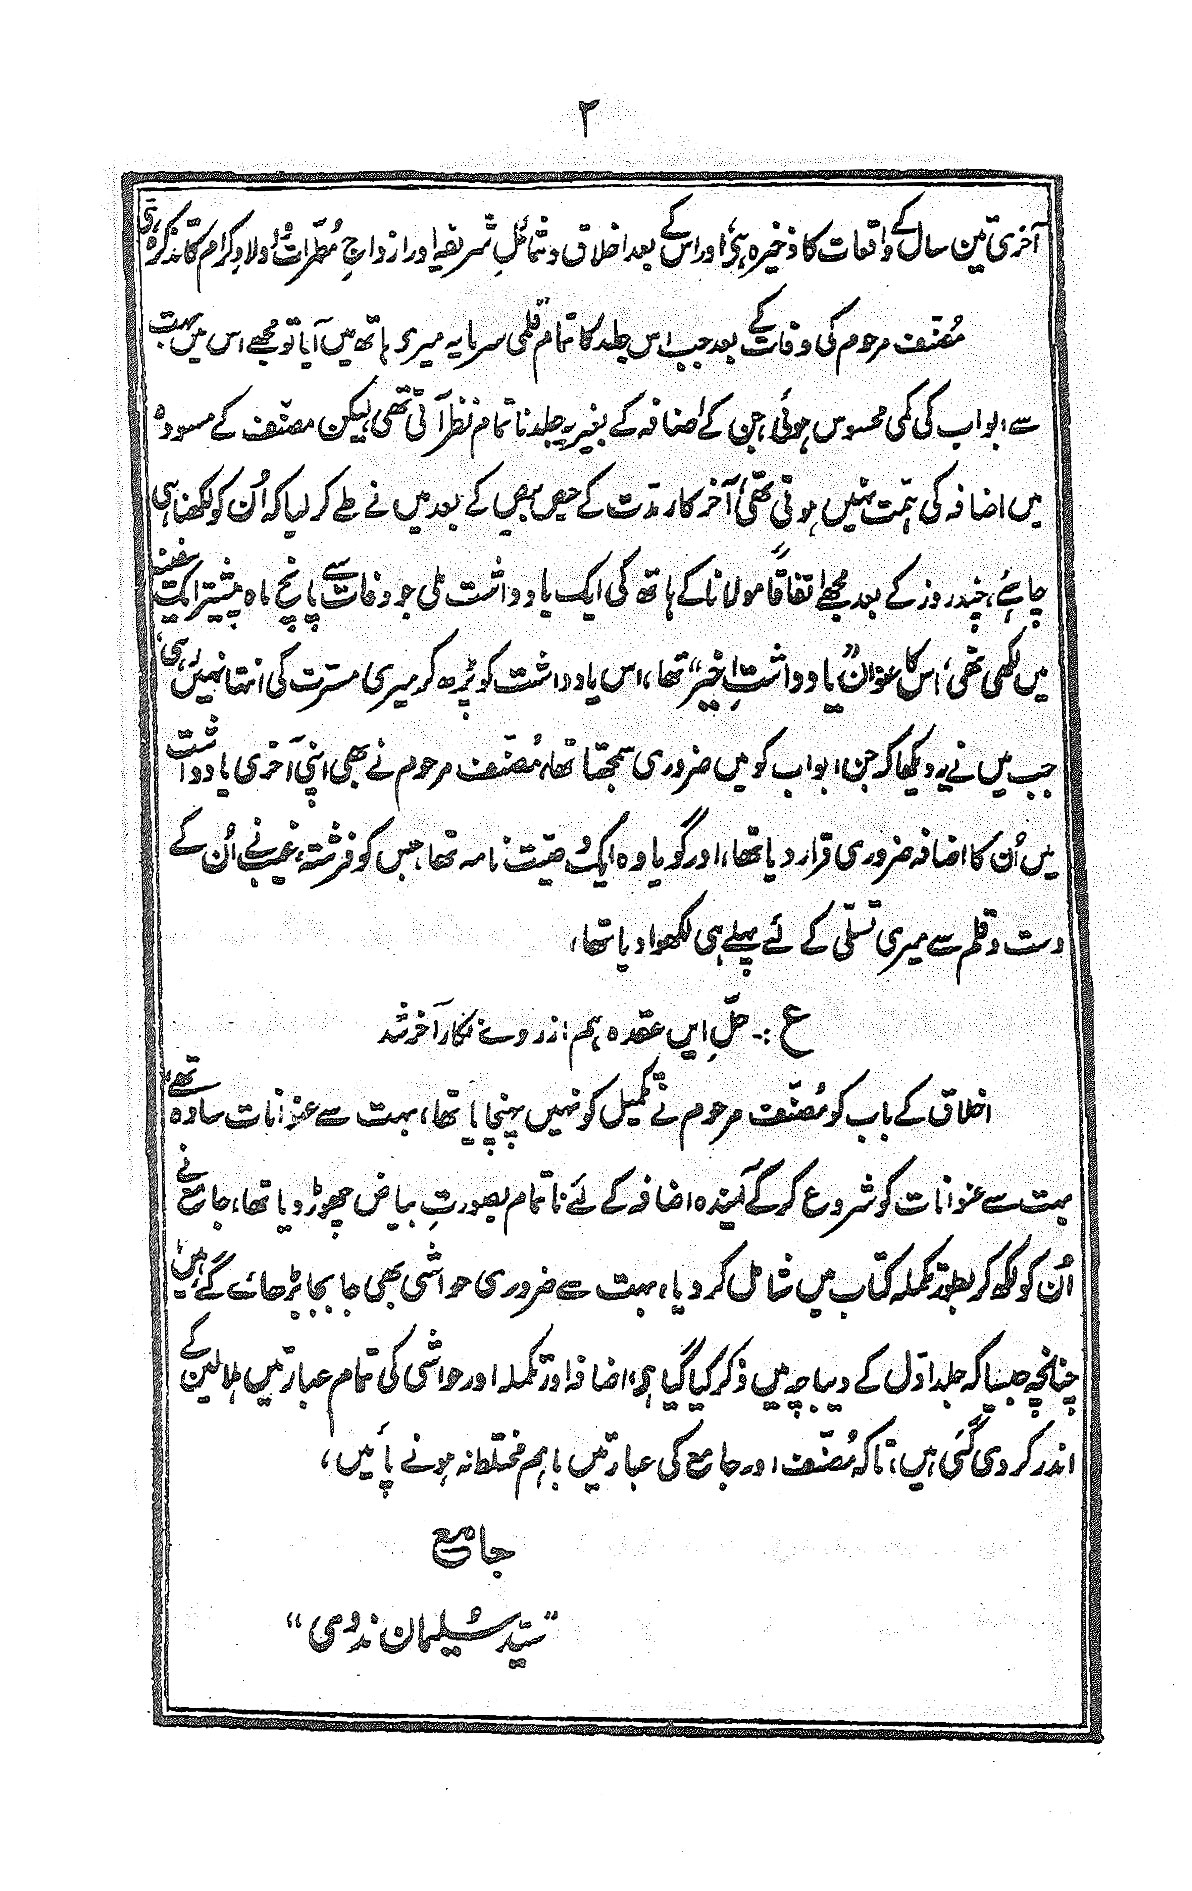 ۲
آخری تین سال کے واقعات کا ذخیرہ ہی، اور اس کے بعد اخلاق و شمائل شریفہ اور ازواجِ مُطہّرات و اولادِ کرام کا تذکرہ ہی،
مُصنّف مرحوم کی وفات کے بعد جب اس جلد کا تمام قلمی سرمایہ میری ہاتھ میں آیا تو مجھے اس میں بہت
سے ابواب کی کمی محسوس ہوئی، جن کے اضافہ کے بغیر یہ جلد ناتمام نظر آتی تھی، لیکن مصنّف کے مسودہ
میں اضافہ کی ہمت نہیں ہوتی تھی، آخر کار مدّت کے حیص بیص کے بعد میں نے طے کر لیا کہ اُن کو لکھنا ہی
چاہئے، چند روز کے بعد مجھے اتفاقاً مولانا کے ہاتھ کی ایک یادداشت ملی جو وفات سے پانچ ماہ پیشتر ایک سفینہ
میں لکھی تھی، اس کا عنوان "یادداشتِ اخیر" تھا، اس یادداشت کو پڑھ کر میری مسرّت کی انتہا نہیں رہی،
جب میں نے یہ دیکھا کہ جن ابواب کو میں ضروری سمجھتا تھا، مُصنّف مرحوم نے بھی اپنی آخری یادداشت
میں اُن کا اضافہ ضروری قرار دیا تھا، اور گویا وہ ایک وصیّت نامہ تھا، جس کو فرشتۂ غیب نے اُن کے
دست و قلم سے میری تسلّی کے لئے پہلے ہی لکھوا دیا تھا،
ع :- حلِّ ایں عقدہ ہم از روے نگار آخر شد
اخلاق کے باب کو مُصنّف مرحوم نے تکمیل کو نہیں پہنچایا تھا، بہت سے عنوانات سادہ تھے،
بہت سے عنوانات کو شروع کر کے آیندہ اضافہ کے لئے ناتمام بصورتِ بیاض چھوڑ دیا تھا، جامع نے
اُن کو لکھ کر بطور تکملہ کتاب میں شامل کر دیا، بہت سے ضروری حواشی بھی جابجا بڑھائے گئے ہیں،
چنانچہ جیسا کہ جلد اوّل کے دیباچہ میں ذکر کیا گیا ہی، اضافہ اور تکملہ اور حواشی کی تمام عبارتیں ہلالین کے
اندر کر دی گئی ہیں، تاکہ مُصنّف اور جامع کی عبارتیں باہم مختلط نہ ہونے پائیں،
جامع
"سیّد سُلیمان ندوی"